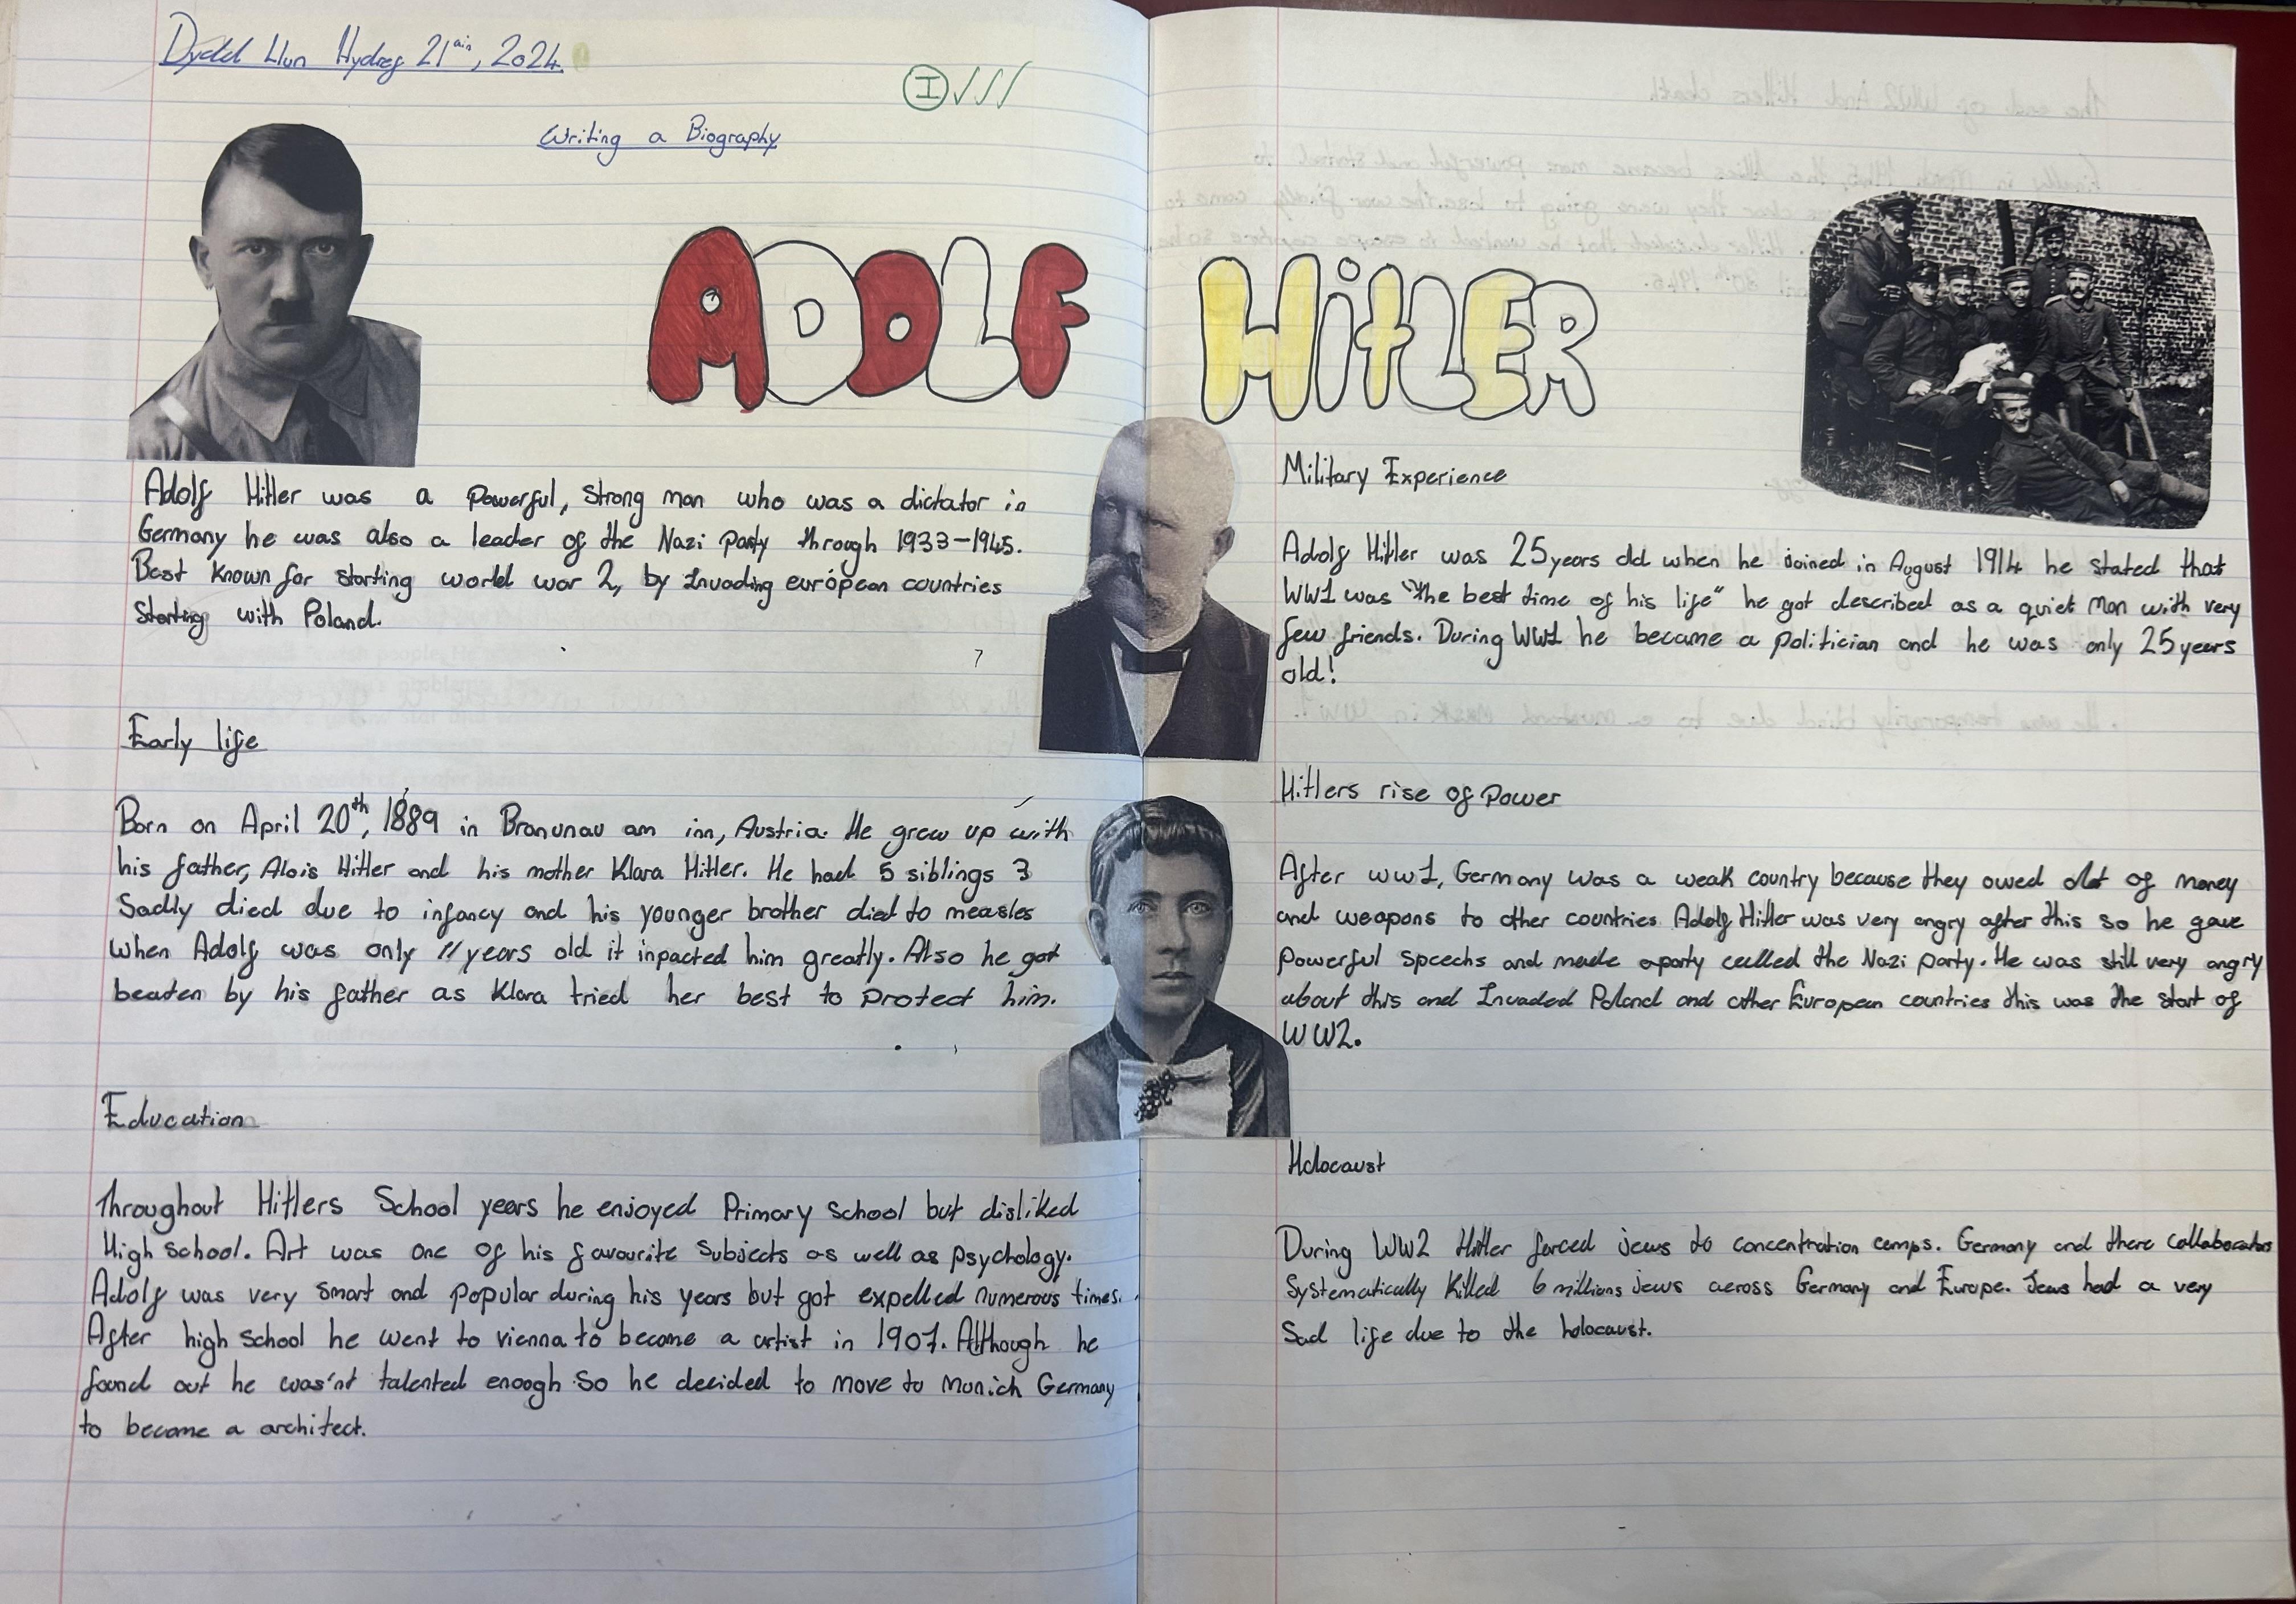 Dydd Llun Hydref 21ain, 2024
I
Writing a Biography
ADOLF HitLER
Adolf Hitler was a powerful, strong man who was a dictator in
Germany he was also a leader of the Nazi party through 1933-1945.
Best known for starting world war 2, by Invading european countries
Starting with Poland.
Early life
Born on April 20th, 1889 in Branunau am inn, Austria. He grew up with
his father, Alois Hitler and his mother Klara Hitler. He had 5 siblings 3
Sadly died due to infancy and his younger brother died to measles
when Adolf was only 11 years old it inpacted him greatly. Also he got
beaten by his father as Klara tried her best to protect him.
Education
Throughout Hitlers School years he enjoyed Primary School but disliked
High school. Art was one of his favourite subjects as well as psychology.
Adolf was very smart and popular during his years but got expelled numerous times.
After high school he went to vienna to become a artist in 1907. Although he
found out he was'nt talented enoogh so he decided to move to Munich Germany
to become a architect.
Military Experience
Adolf Hitler was 25 years old when he joined in August 1914 he stated that
WW1 was "the best time of his life" he got described as a quiet man with very
few friends. During WW1 he became a politician and he was only 25 years
old!
Hitlers rise of power
After ww1, Germany was a weak country because they owed alot of money
and weapons to other countries. Adolf Hitler was very angry after this so he gave
powerful speechs and made a party called the Nazi party. He was still very angry
about this and Invaded Poland and other European countries this was the start of
WW2.
Holocaust
During WW2 Hitler forced jews to concentration camps. Germany and there collaborators
Systematically killed 6 millions jews across Germany and Europe. Jews had a very
Sad life due to the holocaust.